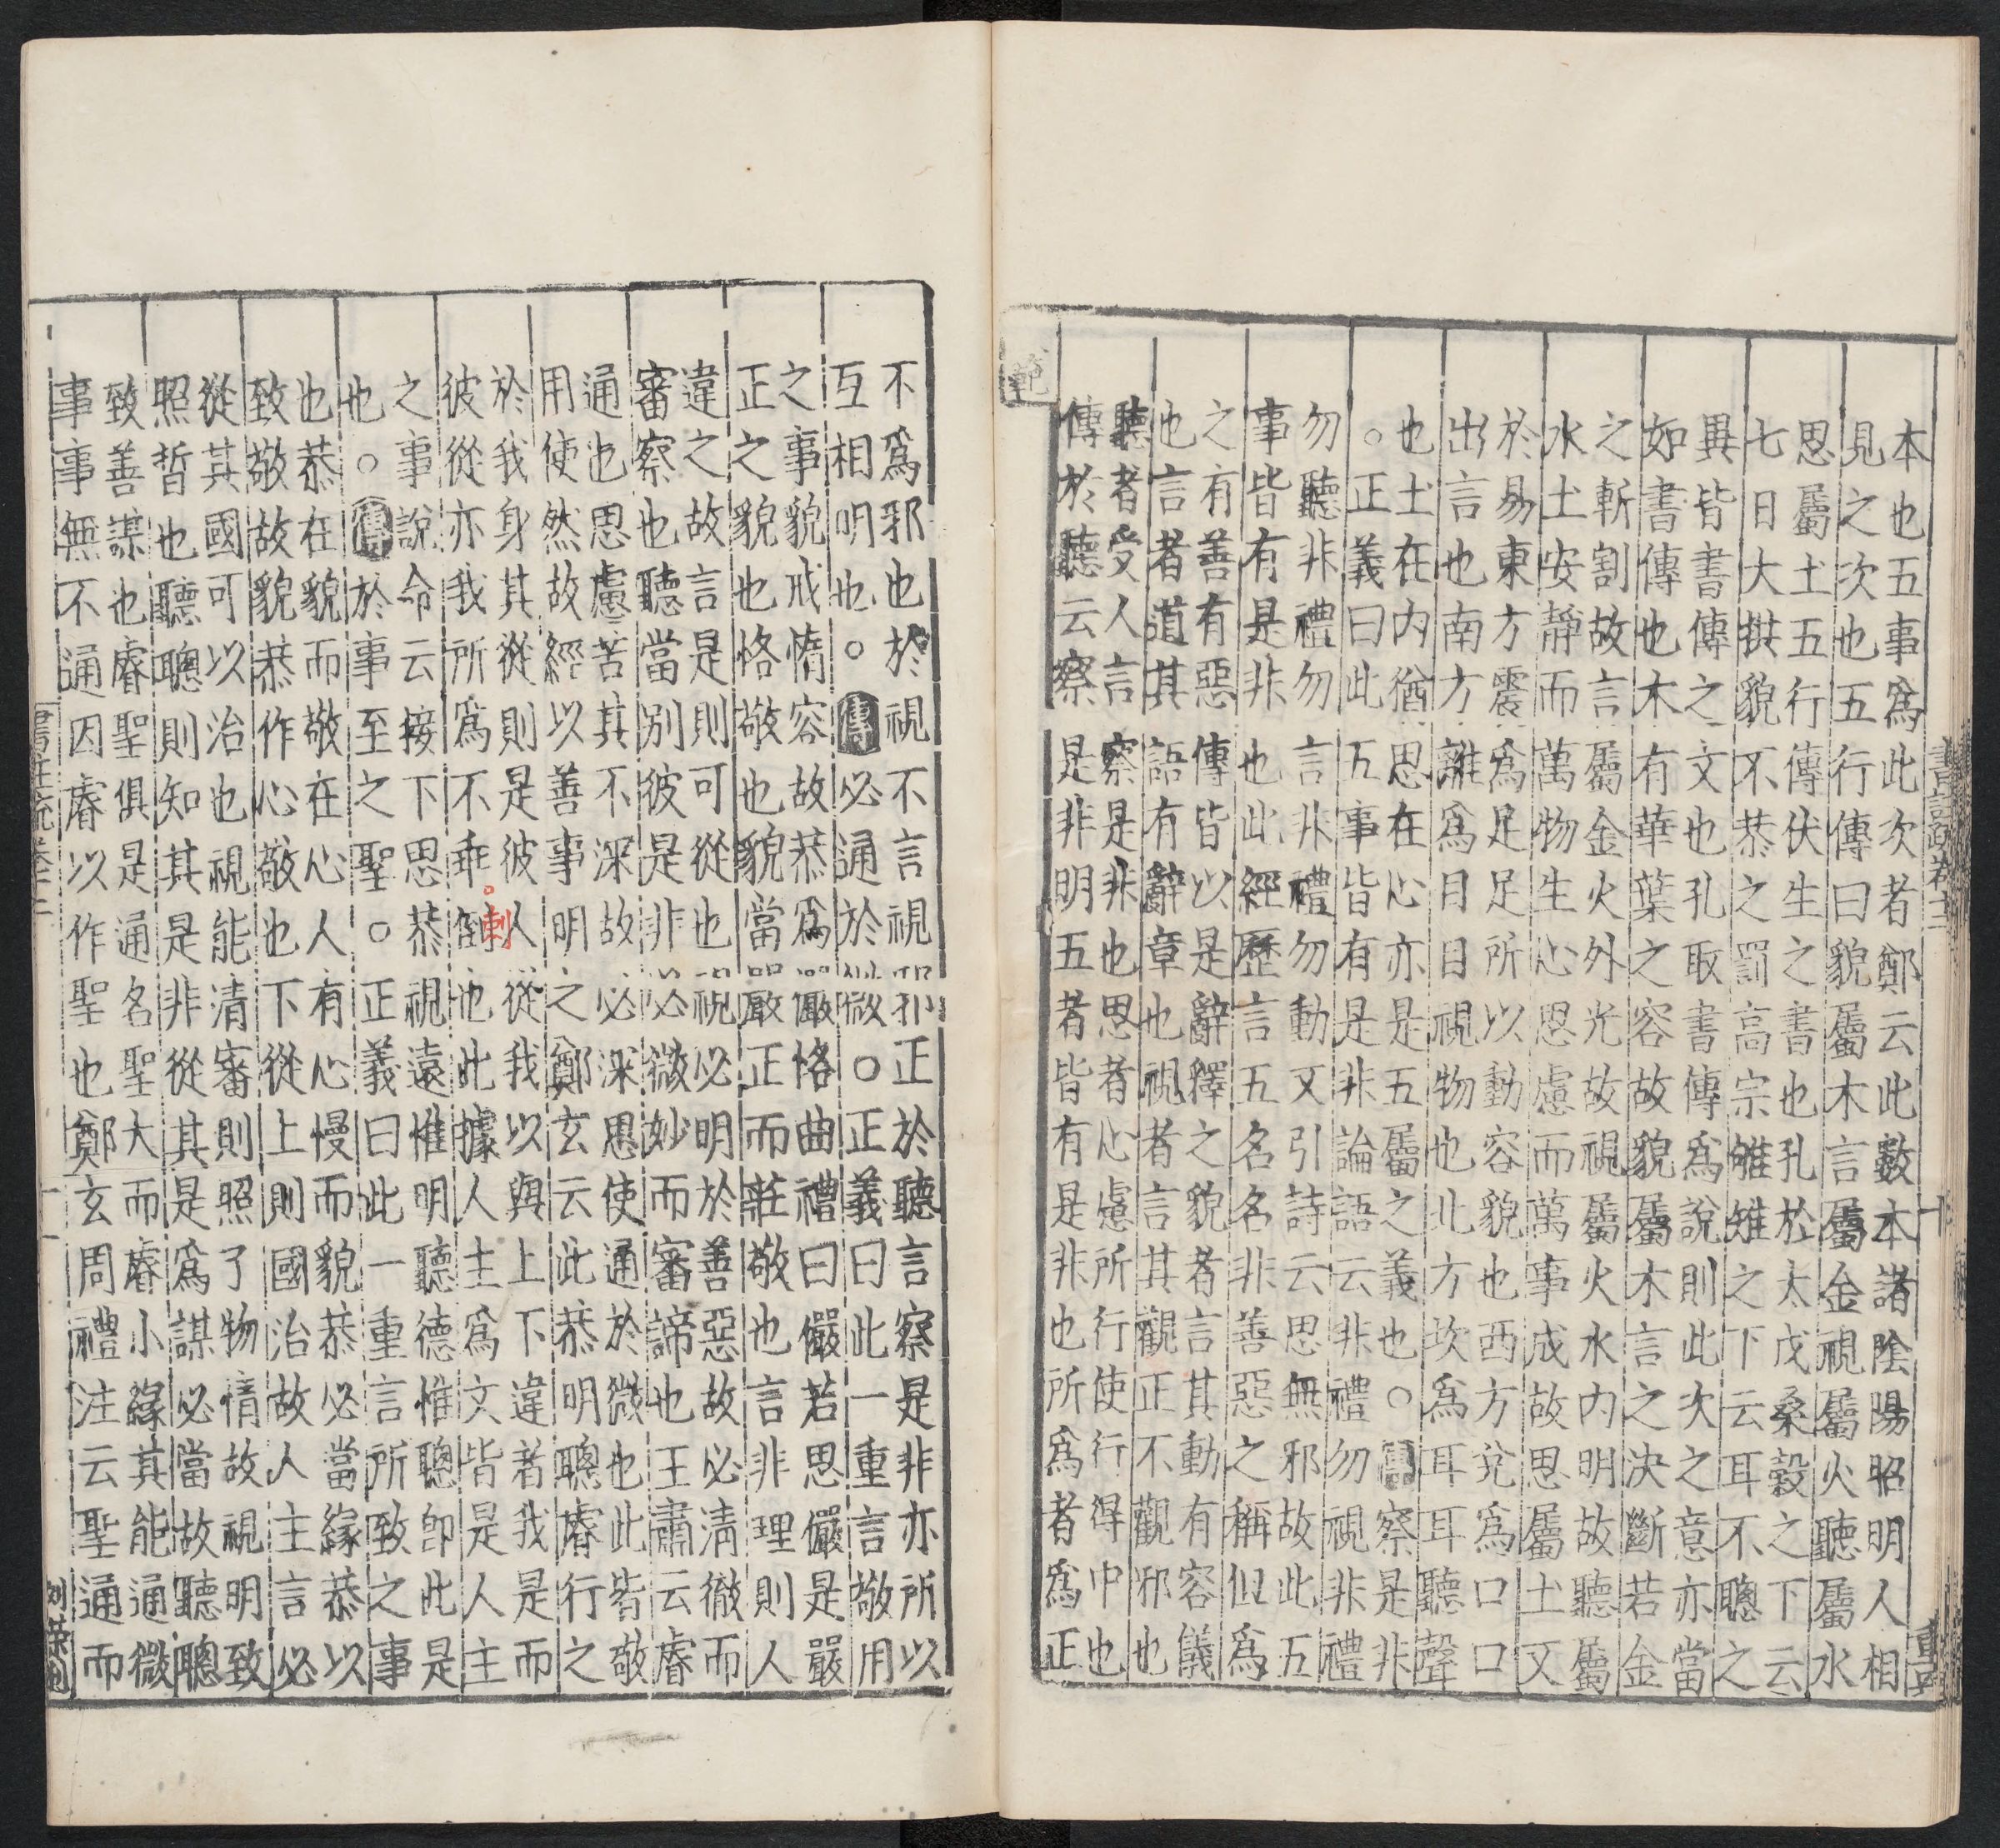 書註疏卷十二
十
本也五事為此次者鄭云此數本諸陰陽昭明人相
見之次也五行傳曰貌屬木言屬金視屬火聽屬水
思屬土五行傳伏生之書也孔於太戊桑穀之下云
七日大拱貌不恭之罰高宗雊雉之下云耳不聰之
異皆書傳之文也孔取書傳為說則此次之意亦當
如書傳也木有華葉之容故貌屬木言之決斷若金
之斬割故言屬金火外光故視屬火水內明故聽屬
水土安靜而萬物生心思慮而萬事成故思屬土又
於易東方震為足足所以動容貌也西方兌為口口
出言也南方離為目目視物也北方坎為耳耳聽聲
也土在內猶思在心亦是五屬之義也○傳察是非
○正義曰此五事皆有是非論語云非禮勿視非禮
勿聽非禮勿言非禮勿動又引詩云思無邪故此五
事皆有是非也此經歷言五名名非善惡之稱但為
之有善有惡傳皆以是辭釋之貌者言其動有容儀
也言者道其語有辭章也視者言其觀正不觀邪也
聽者受人言察是非也思者心慮所行使行得中也
傳於聽云察是非明五者皆有是非也所為者為正
範
不為邪也於視不言視邪正於聽言察是非亦所以
互相明也○傳必通於微○正義曰此一重言敬用
之事貌戒惰容故恭為儼恪曲禮曰儼若思儼是嚴
正之貌也恪敬也貌當嚴正而莊敬也言非理則人
違之故言是則可從也視必明於善惡故必清徹而
審察也聽當別彼是非必微妙而審諦也王肅云睿
通也思慮苦其不深故必深思使通於微也此皆敬
用使然故經以善事明之鄭玄云此恭明聰睿行之
於我身其從則是彼人從我以與上下違者我是而
彼從亦我所為不乖倒也此據人主為文皆是人主
刺
之事說命云接下思恭視遠惟明聽德惟聰即此是
也○傳於事至之聖○正義曰此一重言所致之事
也恭在貌而敬在心人有心慢而貌恭必當緣恭以
致敬故貌恭作心敬也下從上則國治故人主言必
從其國可以治也視能清審則照了物情故視明致
照晢也聽聰則知其是非從其是為謀必當故聽聰
致善謀也睿聖俱是通名聖大而睿小緣其能通微
事事無不通因睿以作聖也鄭玄周禮注云聖通而